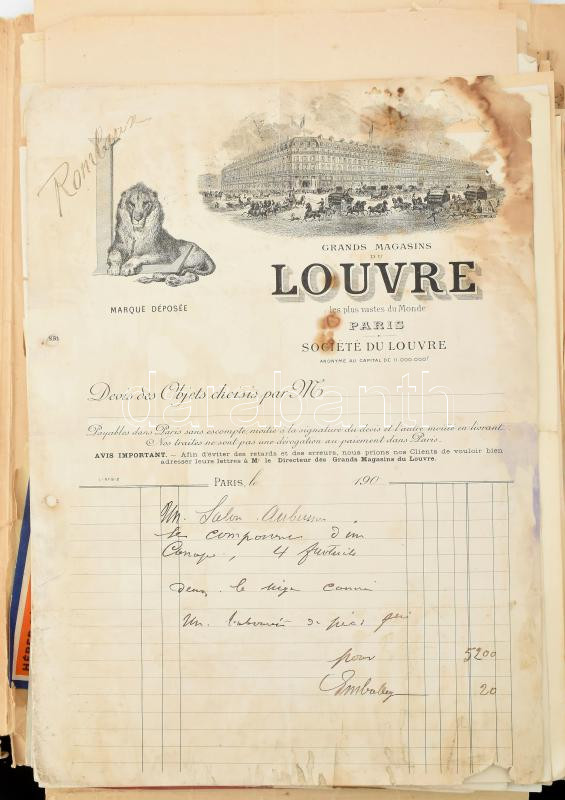 Rombaux
MARQUE DÉPOSÉE
GRANDS MAGASINS
DU
LOUVRE
les plus vastes du Monde
PARIS
SOCIÉTÉ DU LOUVRE
ANONYME AU CAPITAL DE 11.000.000f
Devis des Objets choisis par M
darabanth
Payables dans Paris sans escompte, moitié à la signature du devis et l'autre moitié en livrant.
Nos traites ne sont pas une dérogation au paiement dans Paris.
AVIS IMPORTANT. – Afin d'éviter des retards et des erreurs, nous prions nos Clients de vouloir bien
adresser leurs lettres à Mr le Directeur des Grands Magasins du Louvre.
PARIS, le 190
Un Salon Aubusson
se composant d'un
Canapé, 4 fauteuils
Un
pour 5200
Emballage 20